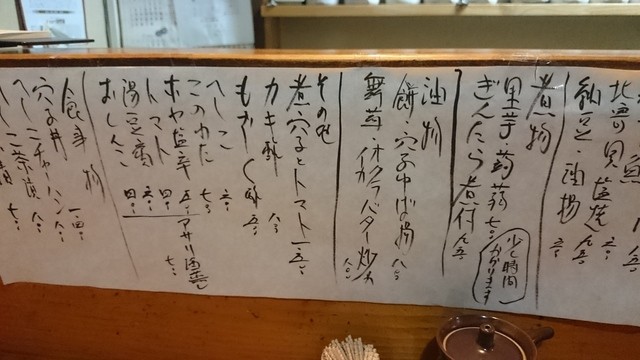 北寄貝塩焼 六:
納豆 油揚 六:
煮物
里芋・蒟蒻 七:
ぎんだら煮付 九五
少し時間
かかります
油物
餅・穴子ゆば揚 八:
舞茸・イカ オクラバター炒め 八:
その他
煮穴子とトマト 一.五:
カキ酢 八:
もずく酢 五:
へしこ 六:
このわた 七:
ホヤ塩辛 五: アサリ酒蒸し 七:
トマト 四:
湯豆腐 六:
おしんこ 四:
食事物
穴子丼 一.四:
〃チャーハン 八:
へしこ茶漬 七: